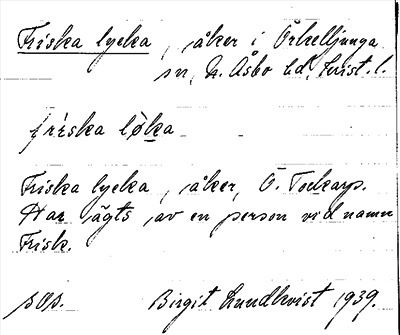 Friska lycka, åker i Örkelljunga
sn, N. Åsbo hd, Krist. l.
friska lø̀ka
Friska lycka, åker, Ö. Tockarp.
Har ägts av en person vid namn
Frisk.
sOp. Birgit Lundkvist 1939.